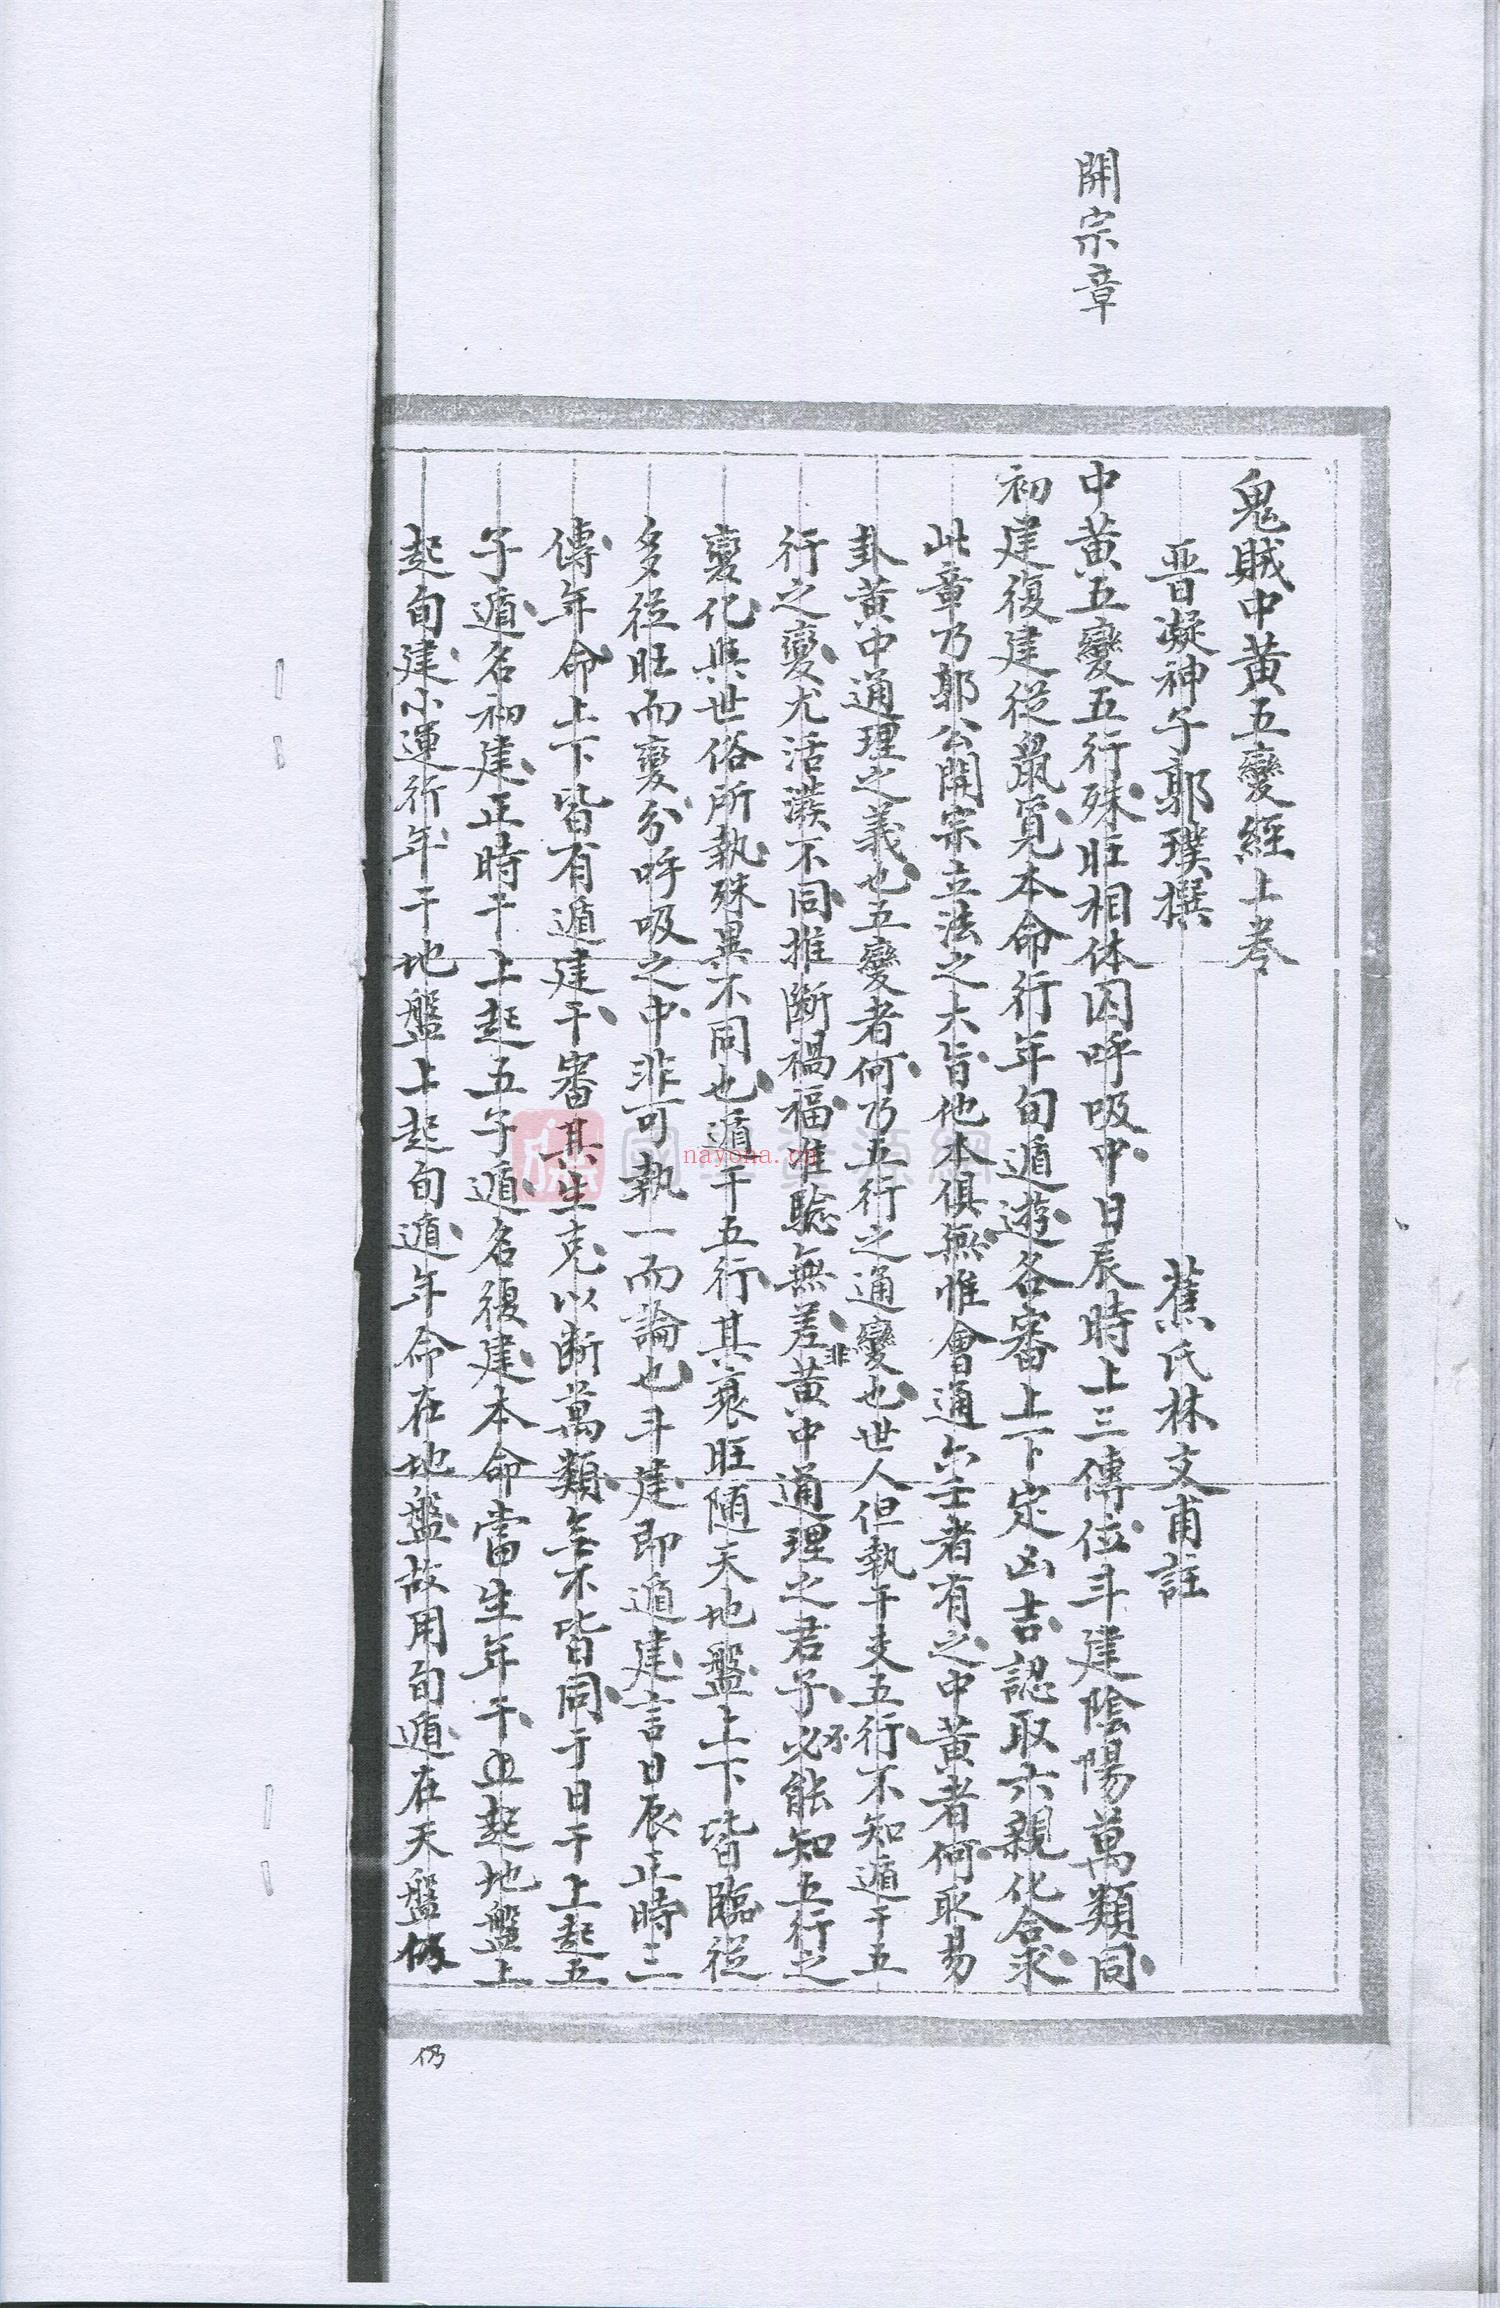 開宗章
鬼賊中黃五變經上卷
晋凝神子郭璞撰 蕉氏林支甫註
中黃五變五行殊旺相体囚呼吸中日辰時上三傳位斗建陰陽萬類同
初建復建從鼠覓本命行年旬遁遊各審上下定凶吉認取六親化合求
此章乃郭公開宗立法之大旨他本俱無惟會通六壬者有之中黃者何取易
卦黃中通理之義也五變者何乃五行之通變也世人但執干支五行不知遁干五
行之變尤活潑不同推断禍福准驗無差非黃中通理之君子必不能知五行之
變化與世俗所執殊異不同也遁干五行其衰旺隨天地盤上下皆臨從
多從旺而變分呼吸之中非可執一而論也斗建即遁建言日辰正時三
傳年命上下皆有遁建干審其生克以断萬類無不皆同于日干上起五
子遁名初建正時干上起五子遁名復建本命當生年干並起地盤上
起旬建小運行年干地盤上起旬遁年命在地盤故用旬遁在天盤仍
仍
國學資源網
nayona.cn